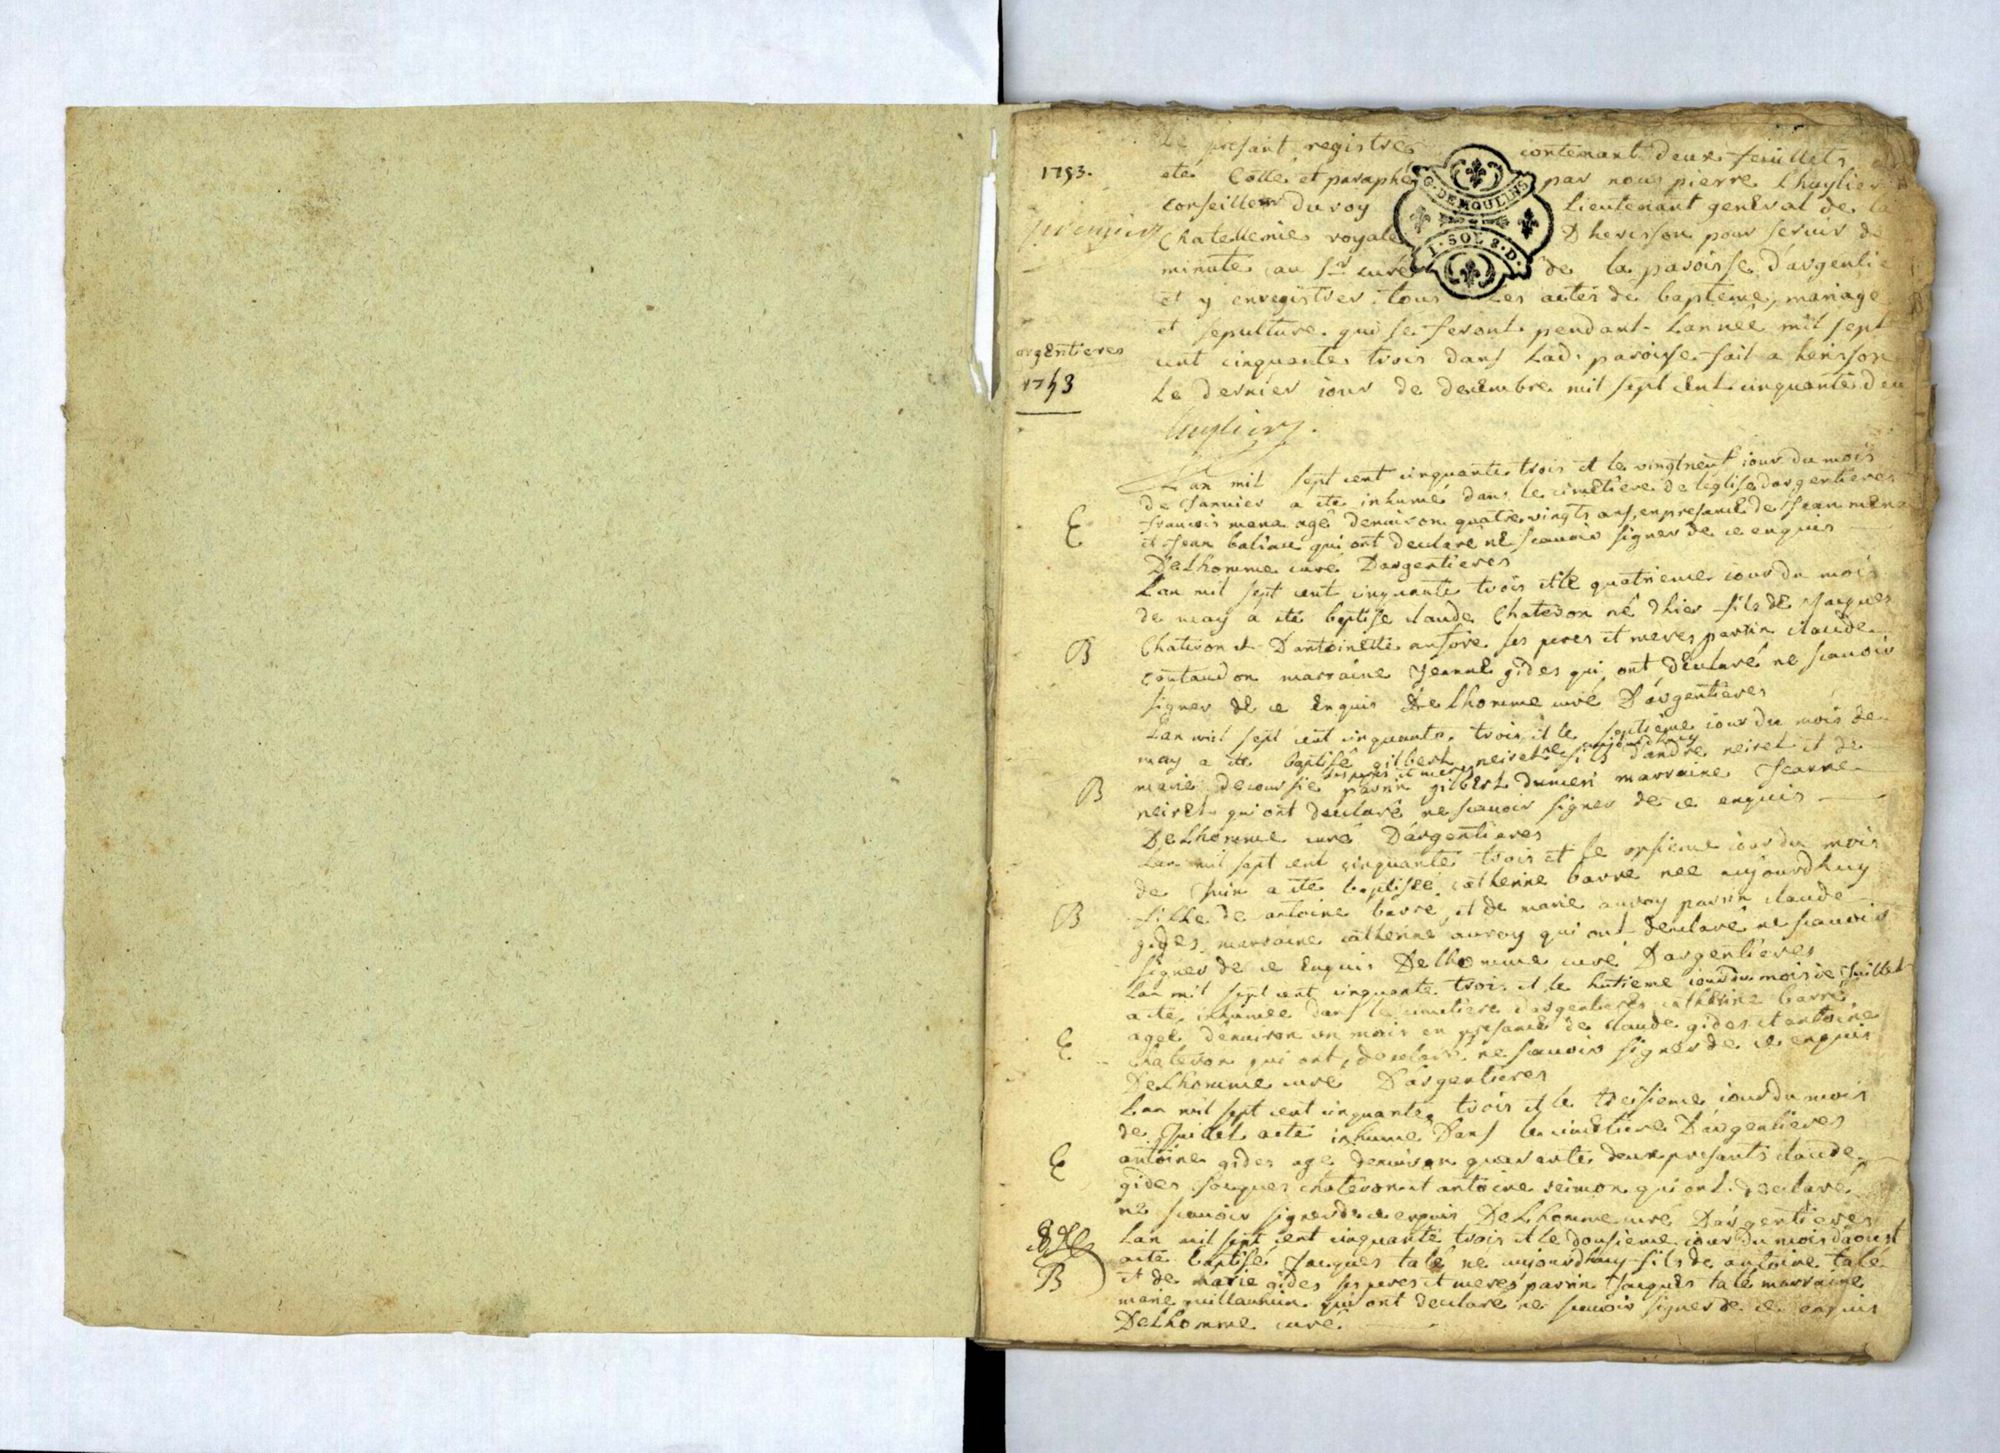 Le presant registre contenant deux feuillets a
1753.
eté Cotté et paraphé par nous pierre Lhuylier
Conseiller du roy Lieutenant general de la
premier
Chatellenie royale D herisson pour servir de
G. DEMOULINS
1. SOL 8. D.
minute au Sr. curé de la paroisse d'argentie
et y enregistrer tous Les actes de bapteme, mariage
et sepulture qui se feront pendant Lanneé mil sept
argentieres
cent cinquante trois dans Lad. paroisse fait a herisson
1753
Le dernier iour de decembre mil sept cent cinquante deu
Lhuylier.
Lan mil sept cent cinquante trois et le vingtneuf iour du mois
de Janvier a ete inhumé dans le cimetiere de leglise dargentieres
E
francois mena agé denviron quatre vingts ans, en presence de Jean mena
et Jean baliau qui ont declare ne scauoir signer de ce enquis
Delhomme curé Dargentieres
Lan mil sept cent cinquante trois et le quatrieme iour du mois
de may a ete baptisé claude Chateron né d'hier fils de Jacques
B
Chateron et D'antoinette ses peres et meres parrin claude
contaudon marraine Jeanne gides qui ont déclaré ne scauoir
signer de ce Enquis Delhomme curé D'argentieres
Lan mil sept cent cinquante trois et le septieme iour du mois de
may a ete baptisé gilbert neiret né aujourdhuy fils d'andre neiret et de
B
marie ses peres et meres parrin gilbert marraine Jeanne
neiret qui ont declaré ne scauoir signer de ce enquis
Delhomme curé D'argentieres
Lan mil sept cent cinquante trois et le onsieme iour du mois
de Juin a ete baptiseé catherine barre neé aujourdhuy
B
fille de antoine barré, et de marie auroy parrin claude
gides marraine catherine auroy qui ont declaré ne scauoir
signer de ce Enquis Delhomme curé D'argentieres
Lan mil sept cent cinquante trois et le hutieme iour du mois de Juillet
a eté inhumeé dans le cimetiere dargentieres catherine barré
E
ageé denviron un mois en presence de claude gides et antoine
chateron qui ont declaré ne scauoir signer de ce enquis
Delhomme curé D'argentieres
Lan mil sept cent cinquante trois et le treisieme iour du mois
de Juillet a eté inhumé Dans le cimetiere D'argentieres
E
antoine gides agé denviron quarante deux presants claude
gides Jacques chateron et antoine seimon qui ont declaré
ne scauoir signer de ce enquis Delhomme curé D'argentieres
Lan mil sept cent cinquante trois et le dousieme iour du mois daoust
a eté baptisé Jacques talé né aujourdhuy fils de antoine talé
B
et de marie gides ses peres et meres parrin Jacques talé marraine
marie guillaumin qui ont declaré ne scauoir signer de ce enquis
Delhomme curé